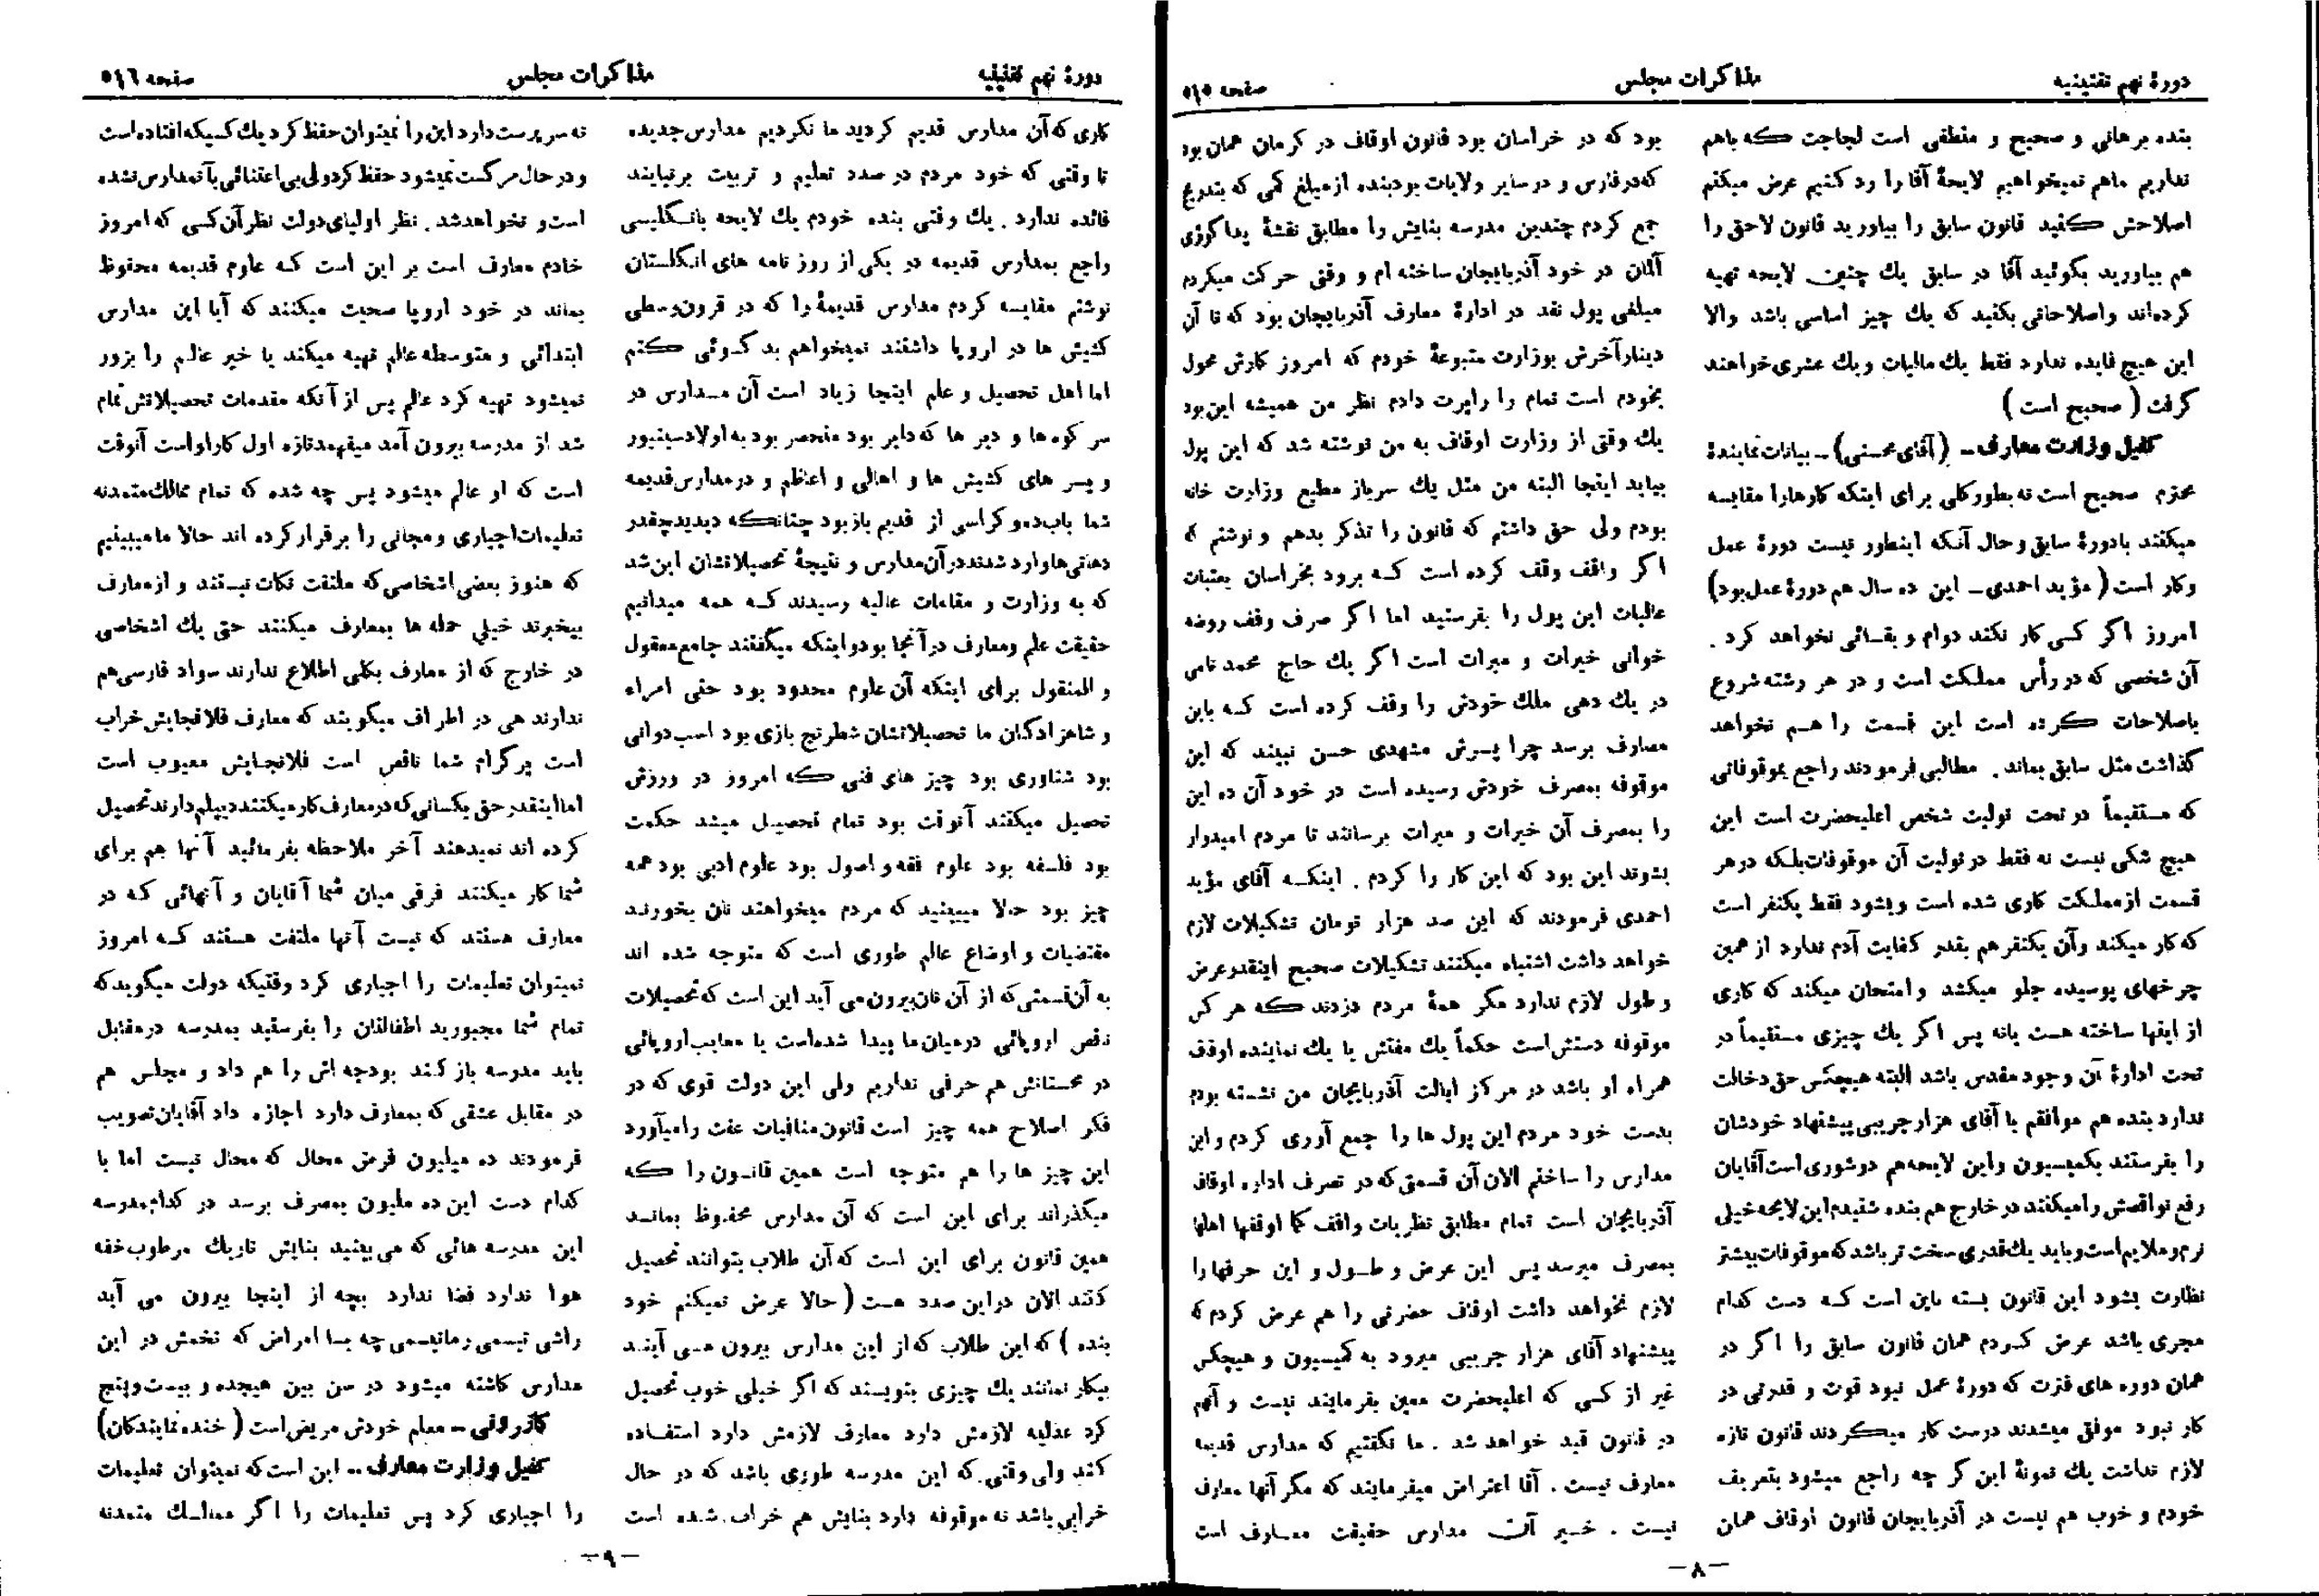 دورهٔ نهم تقنینیه
مذاکرات مجلس
صفحه ۵۱۵
بنده برهانی و صحیح و منطقی است لجاجت که باهم
نداریم ماهم نمیخواهیم لایحهٔ آقا را رد کنیم عرض میکنم
اصلاحش کنید قانون سابق را بیاورید قانون لاحق را
هم بیاورید بگوئید آقا در سابق یك چنین لایحه تهیه
کرده‌اند واصلاحاتی بکنید که یك چیز اساسی باشد والا
این هیچ فایده ندارد فقط یك مالیات ویك عشری خواهند
گرفت ( صحیح است )
کفیل وزارت معارف ـ (آقای محسنی) ـ بیانات نمایندهٔ
محترم صحیح است نه بطورکلی برای اینکه کارهارا مقایسه
میکنند بادورهٔ سابق وحال آنکه اینطور نیست دورهٔ عمل
وکار است ( مؤید احمدی ـ این ده سال هم دورهٔ عمل بود)
امروز اگر کسی کار نکند دوام و بقائی نخواهد کرد .
آن شخصی که در رأس مملکت است و در هر رشته شروع
باصلاحات کرده است این قسمت را هم نخواهد
گذاشت مثل سابق بماند . مطالبی فرمودند راجع بموقوفاتی
که مستقیماً در تحت تولیت شخص اعلیحضرت است این
هیچ شکی نیست نه فقط در تولیت آن موقوفات بلکه در هر
قسمت ازمملکت کاری شده است وبشود فقط یکنفر است
که کار میکند وآن یکنفر هم بقدر کفایت آدم ندارد از همین
چرخهای پوسیده جلو میکشد وامتحان میکند که کاری
از اینها ساخته هست یانه پس اگر یك چیزی مستقیماً در
تحت ادارهٔ آن وجود مقدس باشد البته هیچکس حق دخالت
ندارد بنده هم موافقم با آقای هزارجریبی پیشنهاد خودشان
را بفرستند بکمیسیون واین لایحه هم دوشوری است آقایان
رفع نواقصش را میکنند در خارج هم بنده شنیدم این لایحه خیلی
نرم و ملایم است و باید یك قدری سخت تر باشد که موقوفات بیشتر
نظارت بشود این قانون بسته باین است که دست کدام
مجری باشد عرض کردم همان قانون سابق را اگر در
همان دوره های فترت که دورهٔ عمل نبود قوت و قدرتی در
کار نبود موفق میشدند درست کار میکردند قانون تازه
لازم نداشت یك نمونهٔ این گر چه راجع میشود بتعریف
خودم و خوب هم نیست در آذربایجان قانون اوقاف همان
بود که در خراسان بود قانون اوقاف در کرمان همان بود
که درفارس و در سایر ولایات بود بنده ازمبلغ کمی که بتدریج
جمع کردم چندین مدرسه بنایش را مطابق نقشهٔ پداگوژی
آلمان در خود آذربایجان ساخته ام و وقتی حرکت میکردم
مبلغی پول نقد در ادارهٔ معارف آذربایجان بود که تا آن
دینار آخرش بوزارت متبوعهٔ خودم که امروز کارش محول
بخودم است تمام را راپرت دادم نظر من همیشه این بود
یك وقتی از وزارت اوقاف به من نوشته شد که این پول
بیاید اینجا البته من مثل یك سرباز مطیع وزارت خانه
بودم ولی حق داشتم که قانون را تذکر بدهم و نوشتم که
اگر واقف وقف کرده است که برود بخراسان بعتبات
عالیات این پول را بفرستید اما اگر صرف وقف روضه
خوانی خیرات و مبرات است اگر یك حاج محمد نامی
در یك دهی ملك خودش را وقف کرده است که باین
مصارف برسد چرا پسرش مشهدی حسن نبیند که این
موقوفه بمصرف خودش رسیده است در خود آن ده این
را بمصرف آن خیرات و مبرات برسانند تا مردم امیدوار
بشوند این بود که این کار را کردم . اینکه آقای مؤید
احمدی فرمودند که این صد هزار تومان تشکیلات لازم
خواهد داشت اشتباه میکنند تشکیلات صحیح اینقدر عرض
و طول لازم ندارد مگر همهٔ مردم دزدند که هر کس
موقوفه دستش است حکماً یك مفتش یا یك نماینده اوقاف
همراه او باشد در مرکز ایالت آذربایجان من نشسته بودم
بدست خود مردم این پول ها را جمع آوری کردم و این
مدارس را ساختم الان آن قسمتی که در تصرف اداره اوقاف
آذربایجان است تمام مطابق نظریات واقف کما اوقفها اهلها
بمصرف میرسد پس این عرض و طول و این حرفها را
لازم نخواهد داشت اوقاف حضرتی را هم عرض کردم که
پیشنهاد آقای هزار جریبی میرود به کمیسیون و هیچکس
غیر از کسی که اعلیحضرت معین بفرمایند نیست و آنهم
در قانون قید خواهد شد . ما نگفتیم که مدارس قدیمه
معارف نیست . آقا اعتراض میفرمایند که مگر آنها معارف
نیست . خیر آن مدارس حقیقت معارف است
ـ۸ـ
دورهٔ نهم تقنینیه
مذاکرات مجلس
صفحه ۵۱۶
کاری که آن مدارس قدیم کردید ما نکردیم مدارس جدیده
تا وقتی که خود مردم در صدد تعلیم و تربیت برنیایند
فائده ندارد . یك وقتی بنده خودم یك لایحه بانگلیسی
راجع بمدارس قدیمه در یکی از روزنامه های انگلستان
نوشتم مقایسه کردم مدارس قدیمهٔ را که در قرون وسطی
کشیش ها در اروپا داشتند نمیخواهم بد گوئی کنم
اما اهل تحصیل و علم اینجا زیاد است آن مدارس در
سر کوه ها و دیر ها که دایر بود منحصر بود به اولاد سینیور
و پسر های کشیش ها و اهالی و اعاظم و در مدارس قدیمه
شما باب دموکراسی از قدیم باز بود چنانکه دیدید چقدر
دهاتی ها وارد شدند در آن مدارس و نتیجهٔ تحصیلاتشان این شد
که به وزارت و مقامات عالیه رسیدند که همه میدانیم
حقیقت علم ومعارف در آنجا بود و اینکه میگفتند جامع معقول
و المنقول برای اینکه آن علوم محدود بود حتی امراء
و شاهزادگان ما تحصیلاتشان شطرنج بازی بود اسب دوانی
بود شناوری بود چیز های فنی که امروز در ورزش
تحصیل میکنند آنوقت بود تمام تحصیل میشد حکمت
بود فلسفه بود علوم فقه و اصول بود علوم ادبی بود همه
چیز بود حالا میبینید که مردم میخواهند نان بخورند
مقتضیات و اوضاع عالم طوری است که متوجه شده اند
به آن قسمتی که از آن نان بیرون می آید این است که تحصیلات
نقص اروپائی در میان ما پیدا شده است یا معایب اروپائی
در محسناتش هم حرفی نداریم ولی این دولت قوی که در
فکر اصلاح همه چیز است قانون منافیات عفت را میآورد
این چیز ها را هم متوجه است همین قانون را که
میگذراند برای این است که آن مدارس محفوظ بماند
همین قانون برای این است که آن طلاب بتوانند تحصیل
کنند الان در این صدد هست ( حالا عرض نمیکنم خود
بنده ) که این طلاب که از این مدارس بیرون می آیند
بیکار نمانند یك چیزی بنویسند که اگر خیلی خوب تحصیل
کرد عدلیه لازمش دارد معارف لازمش دارد استفاده
کند ولی وقتی که این مدرسه طوری باشد که در حال
خرابی باشد نه موقوفه دارد بنایش هم خراب شده است
نه سرپرست دارد این را نمیتوان حفظ کرد یك کسیکه افتاده است
و در حال مرگست نمیشود حفظ کرد ولی بی اعتنائی بآن مدارس نشده
است و نخواهد شد . نظر اولیای دولت نظر آن کسی که امروز
خادم معارف است بر این است که علوم قدیمه محفوظ
بماند در خود اروپا صحبت میکنند که آیا این مدارس
ابتدائی و متوسطه عالم تهیه میکند یا خیر عالم را بزور
نمیشود تهیه کرد عالم پس از آنکه مقدمات تحصیلاتش تمام
شد از مدرسه بیرون آمد میفهمد تازه اول کار او است آنوقت
است که او عالم میشود پس چه شده که تمام ممالك متمدنه
تعلیمات اجباری و مجانی را برقرار کرده اند حالا ما میبینیم
که هنوز بعضی اشخاصی که ملتفت نکات نیستند و از معارف
بیخبرند خیلی حمله ها بمعارف میکنند حتی یك اشخاصی
در خارج که از معارف بکلی اطلاع ندارند سواد فارسی هم
ندارند هی در اطراف میگویند که معارف فلانجایش خراب
است پرگرام شما ناقص است فلانجایش معیوب است
اما اینقدر حق بکسانی که در معارف کار میکنند دیپلم دارند تحصیل
کرده اند نمیدهند آخر ملاحظه بفرمائید آنها هم برای
شما کار میکنند فرقی میان شما آقایان و آنهائی که در
معارف هستند که نیست آنها ملتفت هستند که امروز
نمیتوان تعلیمات را اجباری کرد وقتیکه دولت میگوید که
تمام شما مجبورید اطفالتان را بفرستید بمدرسه در مقابل
باید مدرسه باز کند بودجه اش را هم داد و مجلس هم
در مقابل عشقی که بمعارف دارد اجازه داد آقایان تصویب
فرمودند ده میلیون فرض محال که محال نیست اما با
کدام دست این ده ملیون بمصرف برسد در کدام مدرسه
این مدرسه هائی که می بینید بنایش تاریك مرطوب خفه
هوا ندارد فضا ندارد بچه از اینجا بیرون می آید
راشی تیسمی رماتیسمی چه بسا امراض که تخمش در این
مدارس کاشته میشود در سن بین هیجده و بیست و پنج
کازرونی ـ معلم خودش مریض است ( خنده نمایندگان)
کفیل وزارت معارف ـ این است که نمیتوان تعلیمات
را اجباری کرد پس تعلیمات را اگر ممالك متمدنه
ـ۹ـ